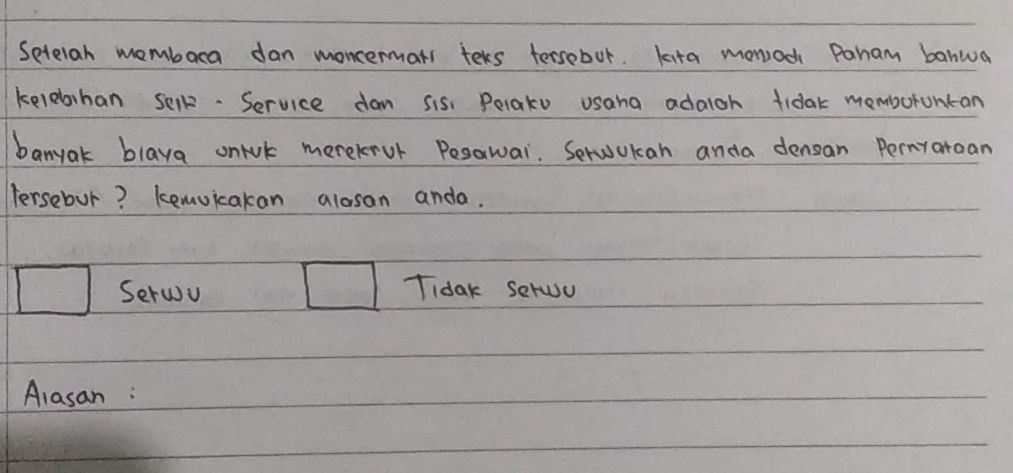 Setelah membaca dan mencermati teks tersebut. kita menjadi Paham bahwa
kelebihan self - Service dari sisi Pelaku usaha adalah tidak membutuhkan
banyak biaya untuk merekrut Pegawai. Setujukah anda dengan Pernyataan
tersebut ? kemukakan alasan anda.
Setuju Tidak setuju
Alasan :